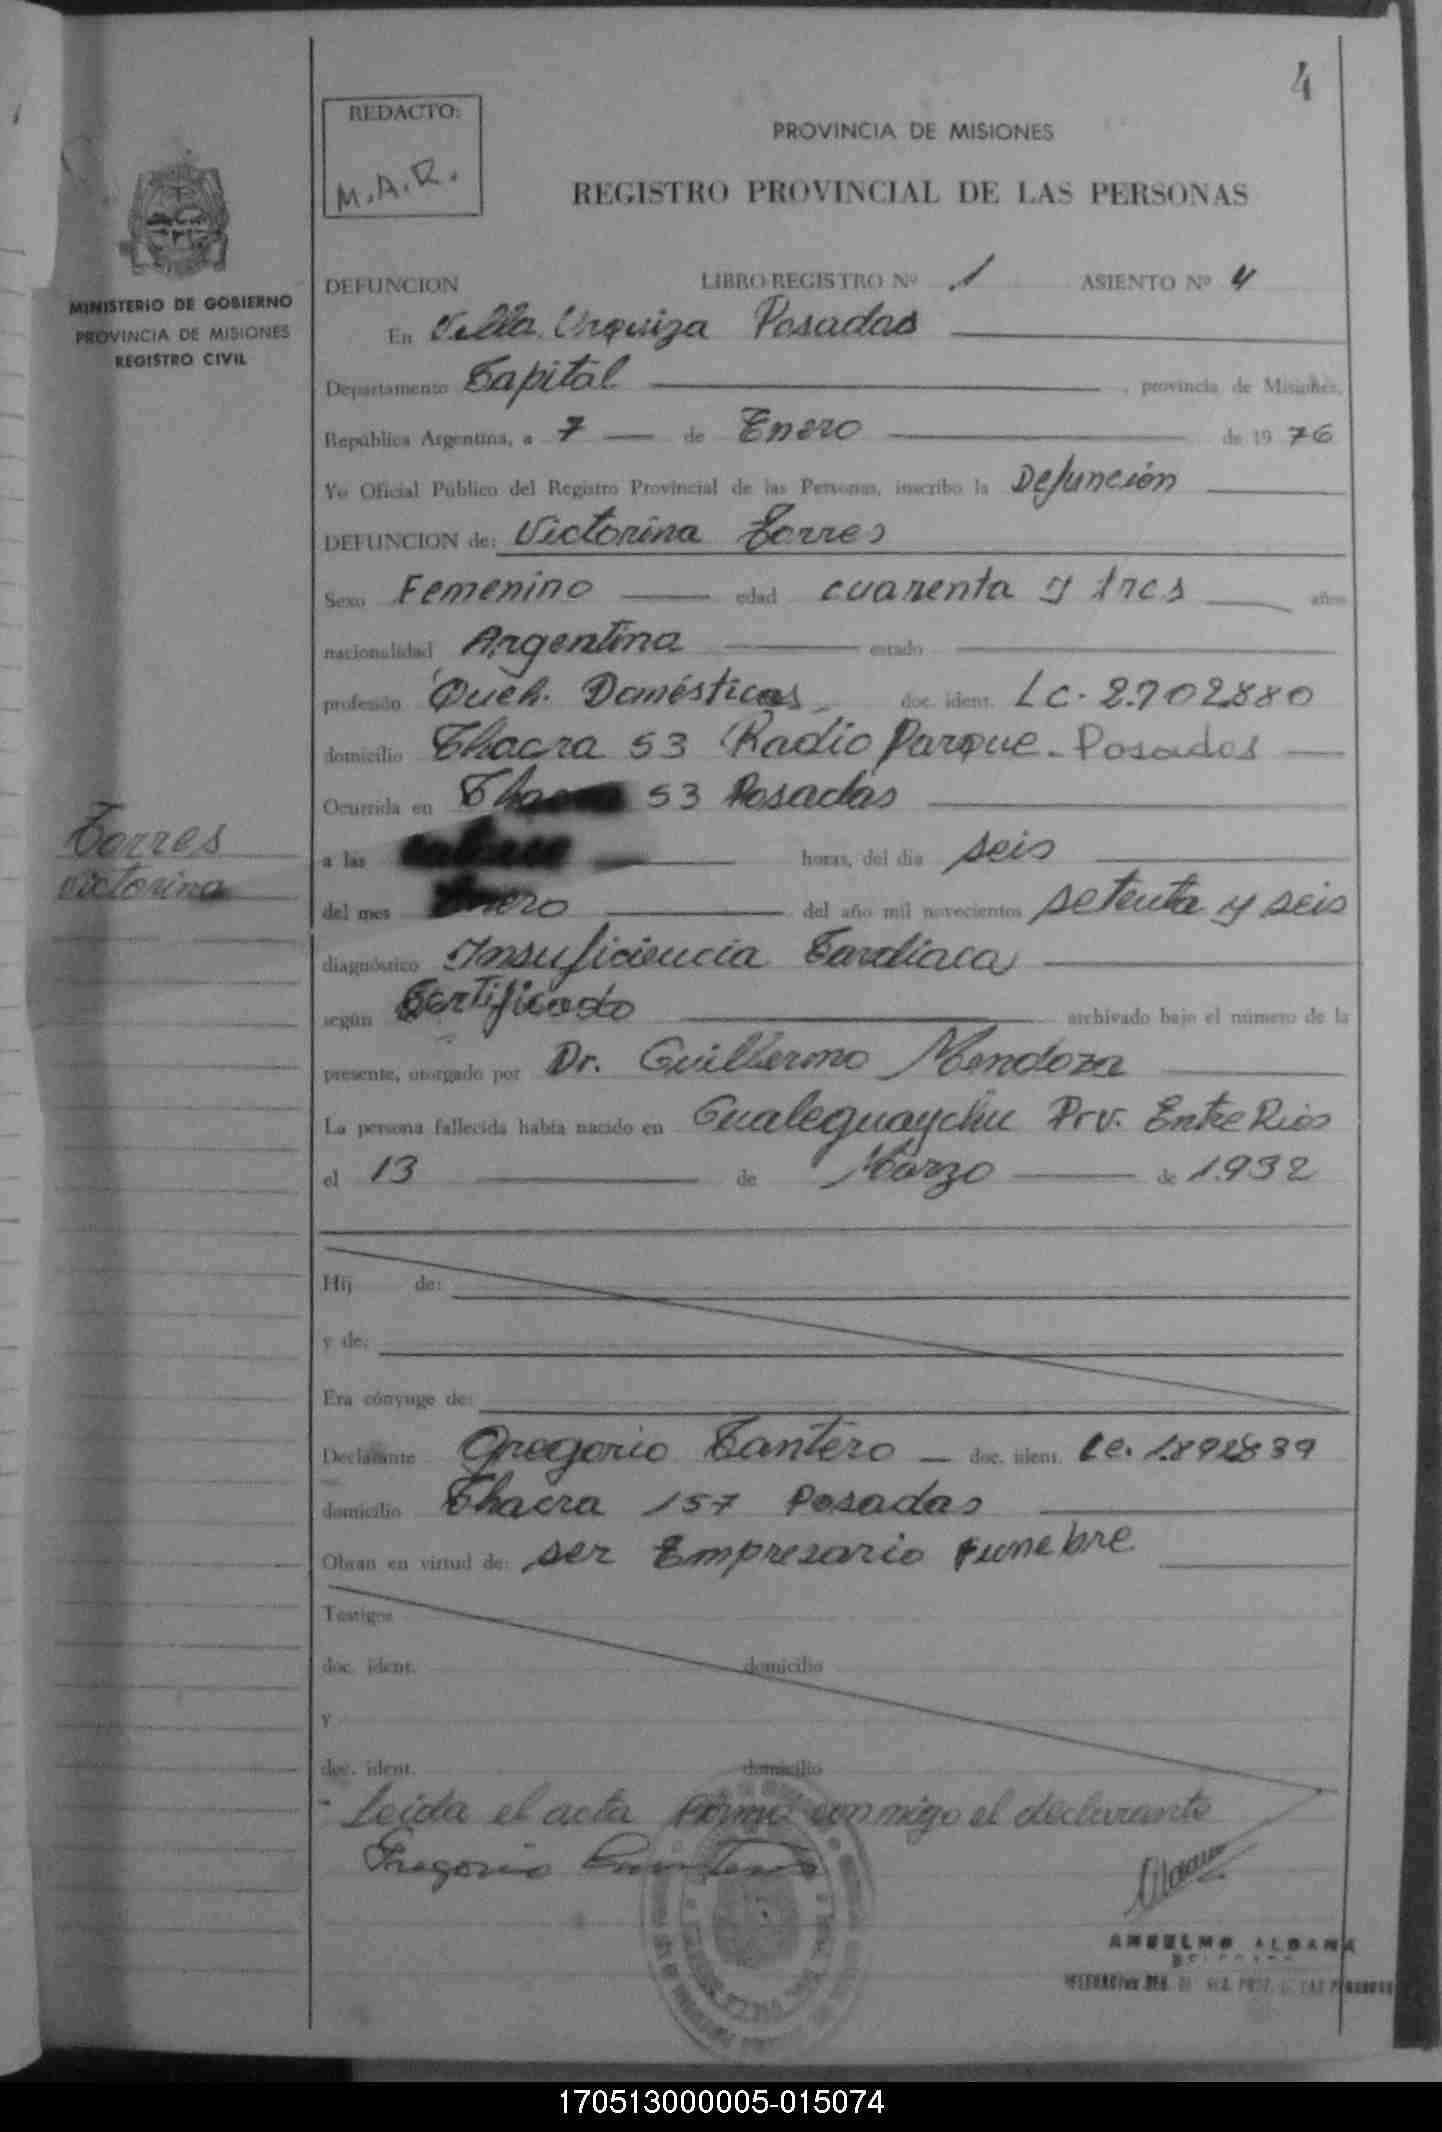 4
REDACTO:
M.A.R.
PROVINCIA DE MISIONES
REGISTRO PROVINCIAL DE LAS PERSONAS
MINISTERIO DE GOBIERNO
PROVINCIA DE MISIONES
REGISTRO CIVIL
DEFUNCION LIBRO-REGISTRO Nº 1 ASIENTO Nº 4
En Villa Urquiza Posadas
Departamento Capital, provincia de Misiones,
República Argentina, a 7 de Enero de 1976
Yo Oficial Público del Registro Provincial de las Personas, inscribo la Defunción
DEFUNCION de: Victorina Torres
Sexo Femenino edad cuarenta y tres años
nacionalidad Argentina estado
profesión Queh. Domésticos doc. ident. LC. 2.702880
domicilio Chacra 53 Radio Parque - Posadas
Ocurrida en Chacra 53 Posadas
a las horas, del día seis
Torres
Victorina
del mes Enero del año mil novecientos setenta y seis
diagnóstico Insuficiencia Cardiaca
según Certificado archivado bajo el número de la
presente, otorgado por Dr. Guillermo Mendoza
La persona fallecida había nacido en Gualeguaychu Prv. Entre Rios
el 13 de Marzo de 1.932
Hij de:
y de:
Era cónyuge de:
Declarante Gregorio Cantero doc. ident.
domicilio Chacra 157 Posadas
Obran en virtud de: ser Empresario Funebre
Testigos
doc. ident. domicilio
Y
doc. ident. domicilio
- Leida el acta firma conmigo el declarante
Gregorio
ANSELMO ALDANA
170513000005-015074